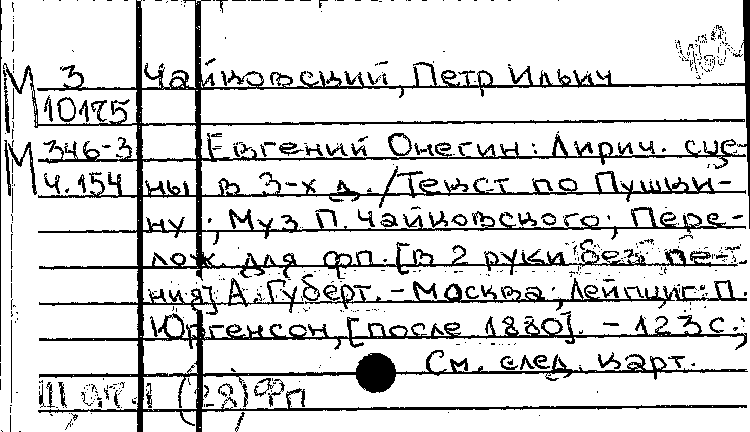 М 3 Чайковский, Петр Ильич
10175
М 346-3 Евгений Онегин: Лирич. сце-
Ч.154 ны в 3-х д. / Текст по Пушки-
ну; Муз П. Чайковского; Пере-
лож. для фп. [в 2 руки без пе-
ния] А. Губерт. - Москва; Лейпциг: П.
Юргенсон, [после 1880]. - 123 с.;
См. след. карт.
(28) Фп